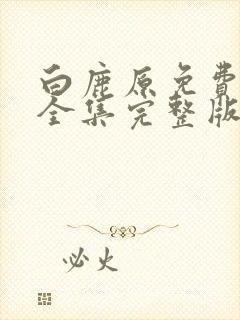 白鹿原免费
全集完整版
必火